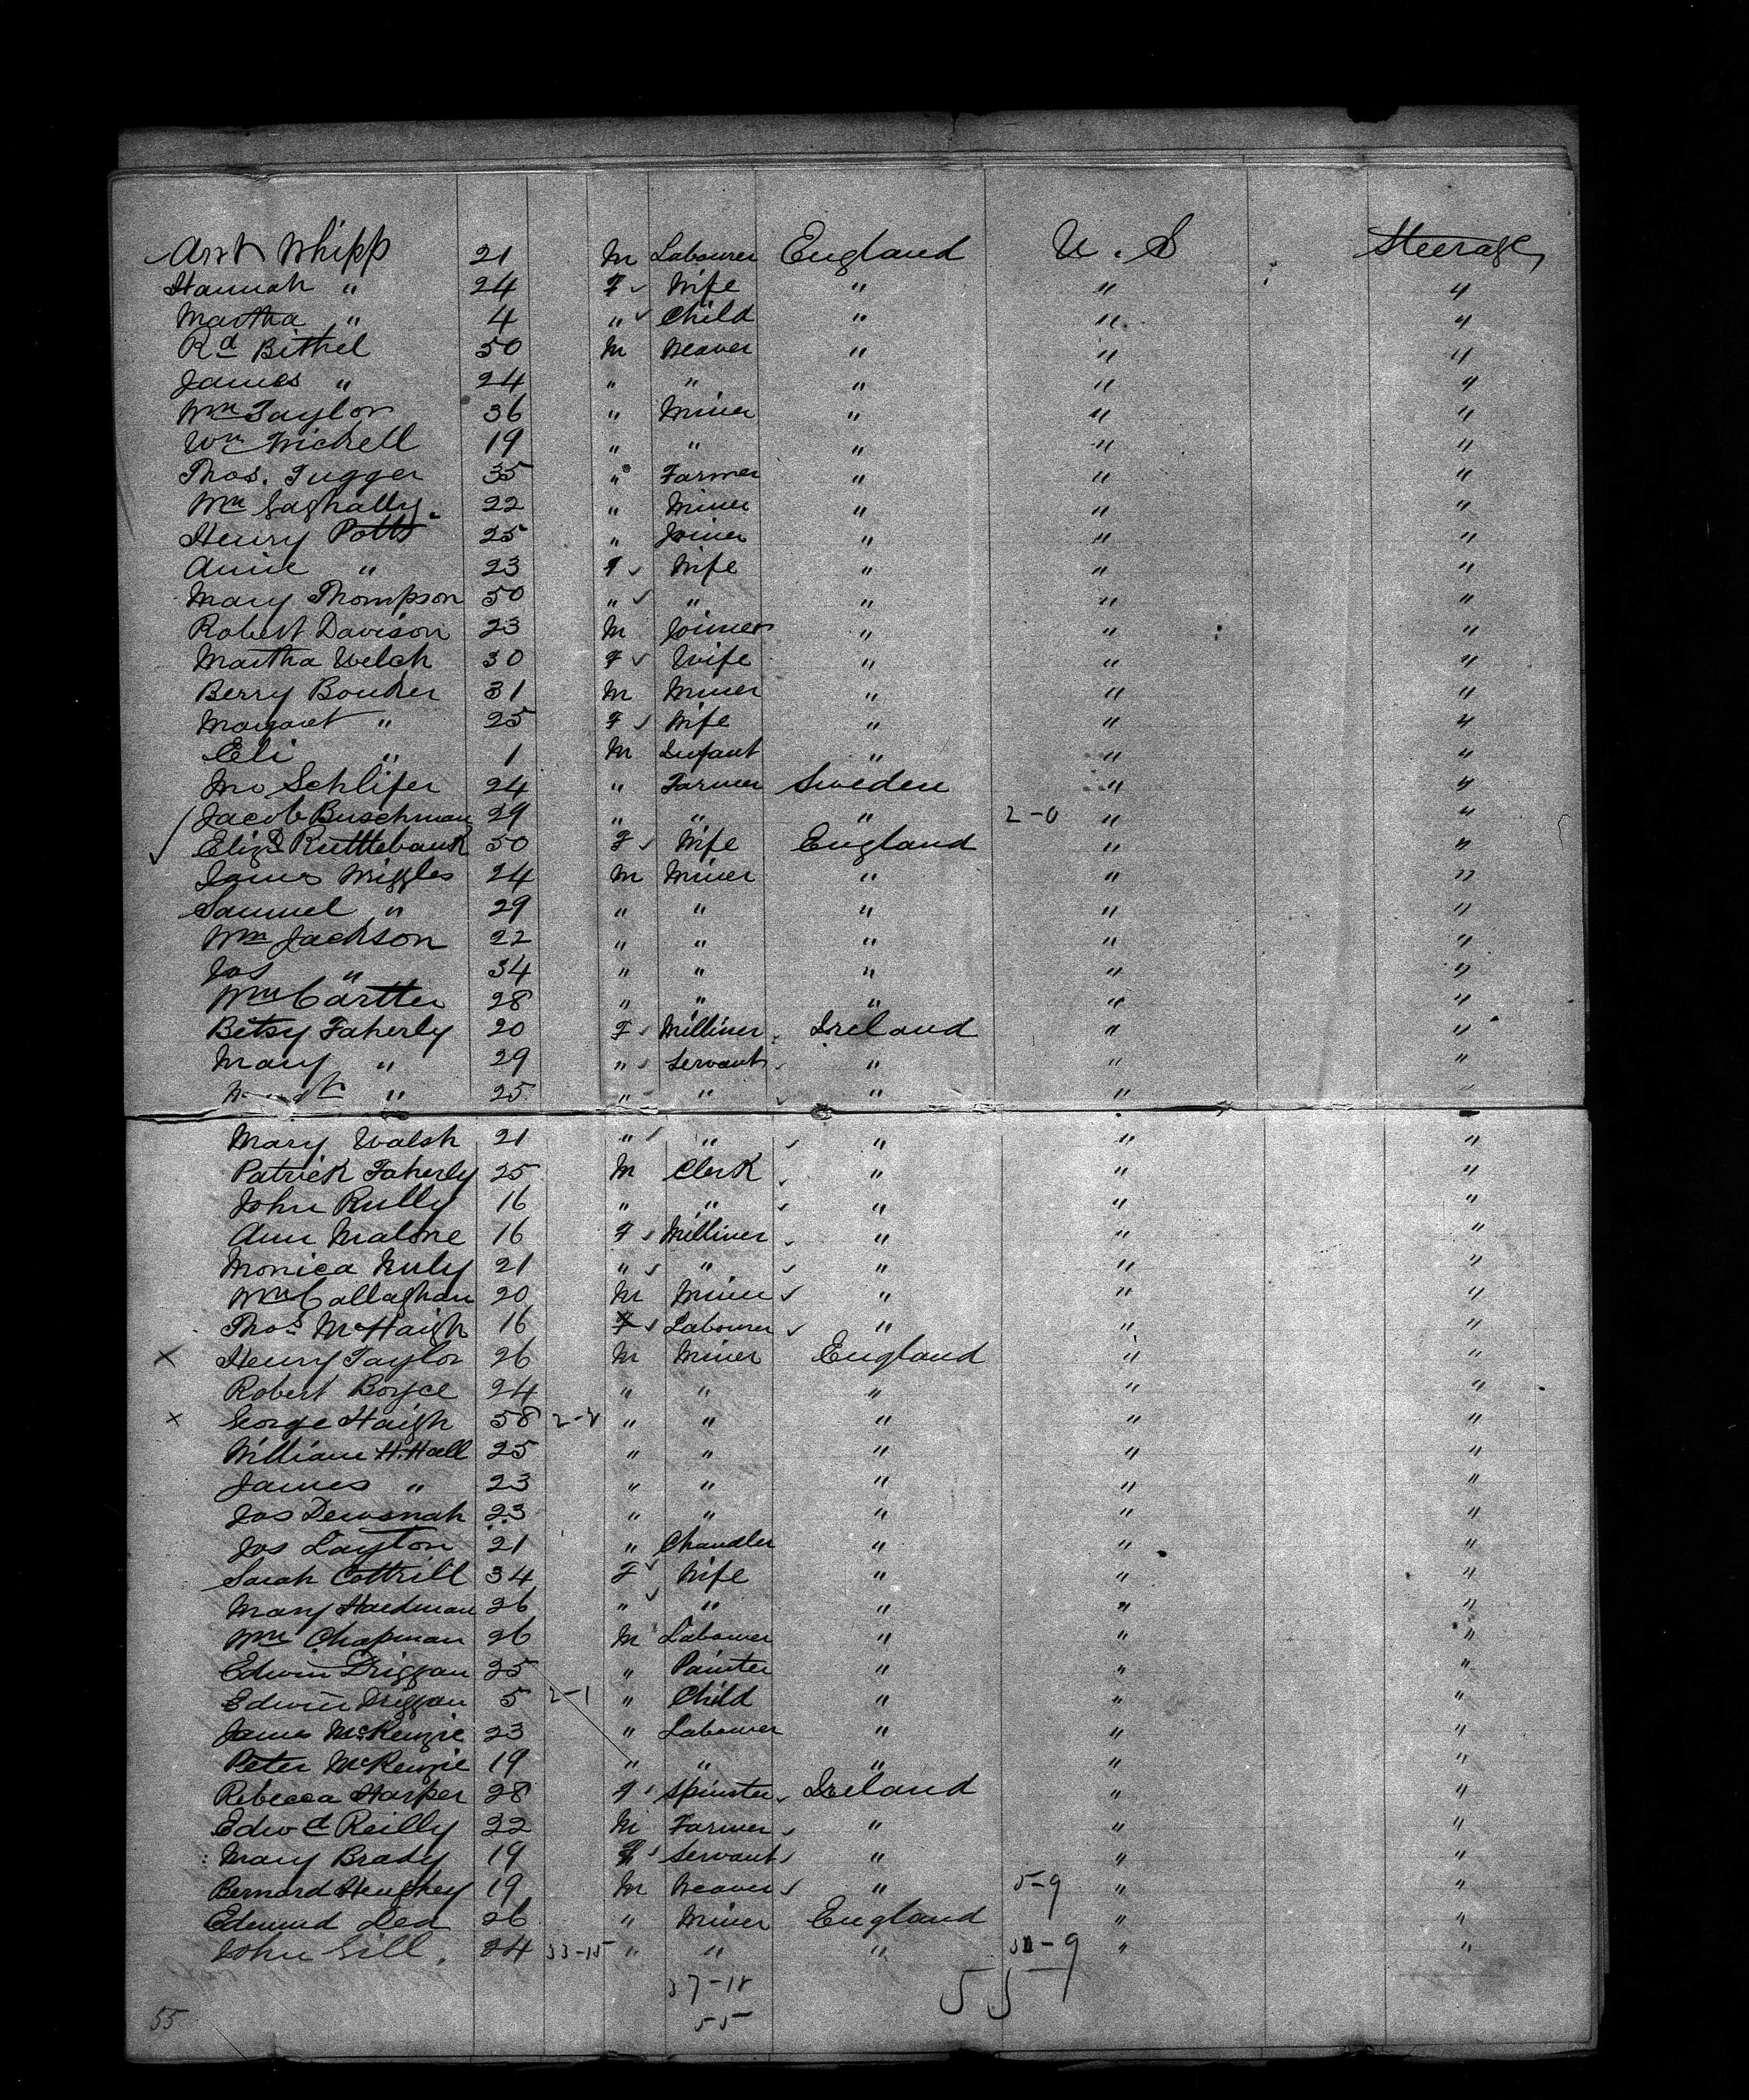 Whipp 21 M Labourer England U. S Steerage
Hannah " 24 F ✓ Wife " " "
Martha " 4 " ✓ Child " " "
Rd Bithel 50 M Weaver " " "
James " 24 " " " " "
Wm Taylor 36 " Miner " " "
Wm 19 " " " " "
Thos. Tugger 35 " Farmer " " "
Wm 22 " Miner " " "
Henry Potts 25 " Joiner " " "
Annie " 23 F ✓ Wife " " "
Mary Thompson 50 " ✓ " " " "
Robert Davison 23 M Joiner " " "
Martha Welch 30 F ✓ Wife " " "
Berry 31 M Miner " " "
Margaret " 25 F ✓ Wife " " "
Eli " 1 M Infant " " "
Jno Schlifer 24 " Farmer Sweden " "
Jacob Buschman 29 " " " 2-0 " "
✓ Eliz 50 F ✓ Wife England " "
James Wiggles 24 M Miner " " "
Samuel " 29 " " " " "
Wm Jackson 22 " " " " "
Jos " 34 " " " " "
Wm Cartter 28 " " " " "
Betsy Faherly 20 F ✓ Milliner Ireland " "
Mary " 29 " ✓ Servant " " "
" 25 " " " "
Mary Walsh 21 " ✓ " ✓ " " "
Patrick Faherly 25 M Clerk ✓ " " "
John Rully 16 " " ✓ " " "
Ann Malone 16 F ✓ Milliner ✓ " " "
Monica Nuly 21 " ✓ " ✓ " " "
Wm Callaghan 20 M Miner ✓ " " "
Thos McHaigh 16 F ✓ Labourer ✓ " " "
X Henry Taylor 26 M Miner England " "
Robert Boyce 24 " " " " "
X George Haigh 58 " " " " "
William H. Hall 25 " " " " "
James " 23 " " " " "
Jos Dewsnah 23 " " " " "
Jos Layton 21 " Chandler " " "
Sarah Cottrill 34 F ✓ Wife " " "
Mary Hardman 26 " ✓ " " " "
Wm Chapman 26 M Labourer " " "
Edwin Driggan 25 " Painter " " "
Edwin Driggan 5 2-1 " Child " " "
James McKenzie 23 " Labourer " " "
Peter McKenzie 19 " " " " "
Rebecca Harper 28 F ✓ Spinster ✓ Ireland " "
Edwd Reilly 22 M Farmer ✓ " " "
Mary Brady 19 F ✓ Servant ✓ " " "
Bernard Heuphey 19 M Weaver ✓ " 5-9 " "
Edmund Lea 26 " Miner England " "
John Gill. 24 33-15 " " " " "
37-18 55
55 55